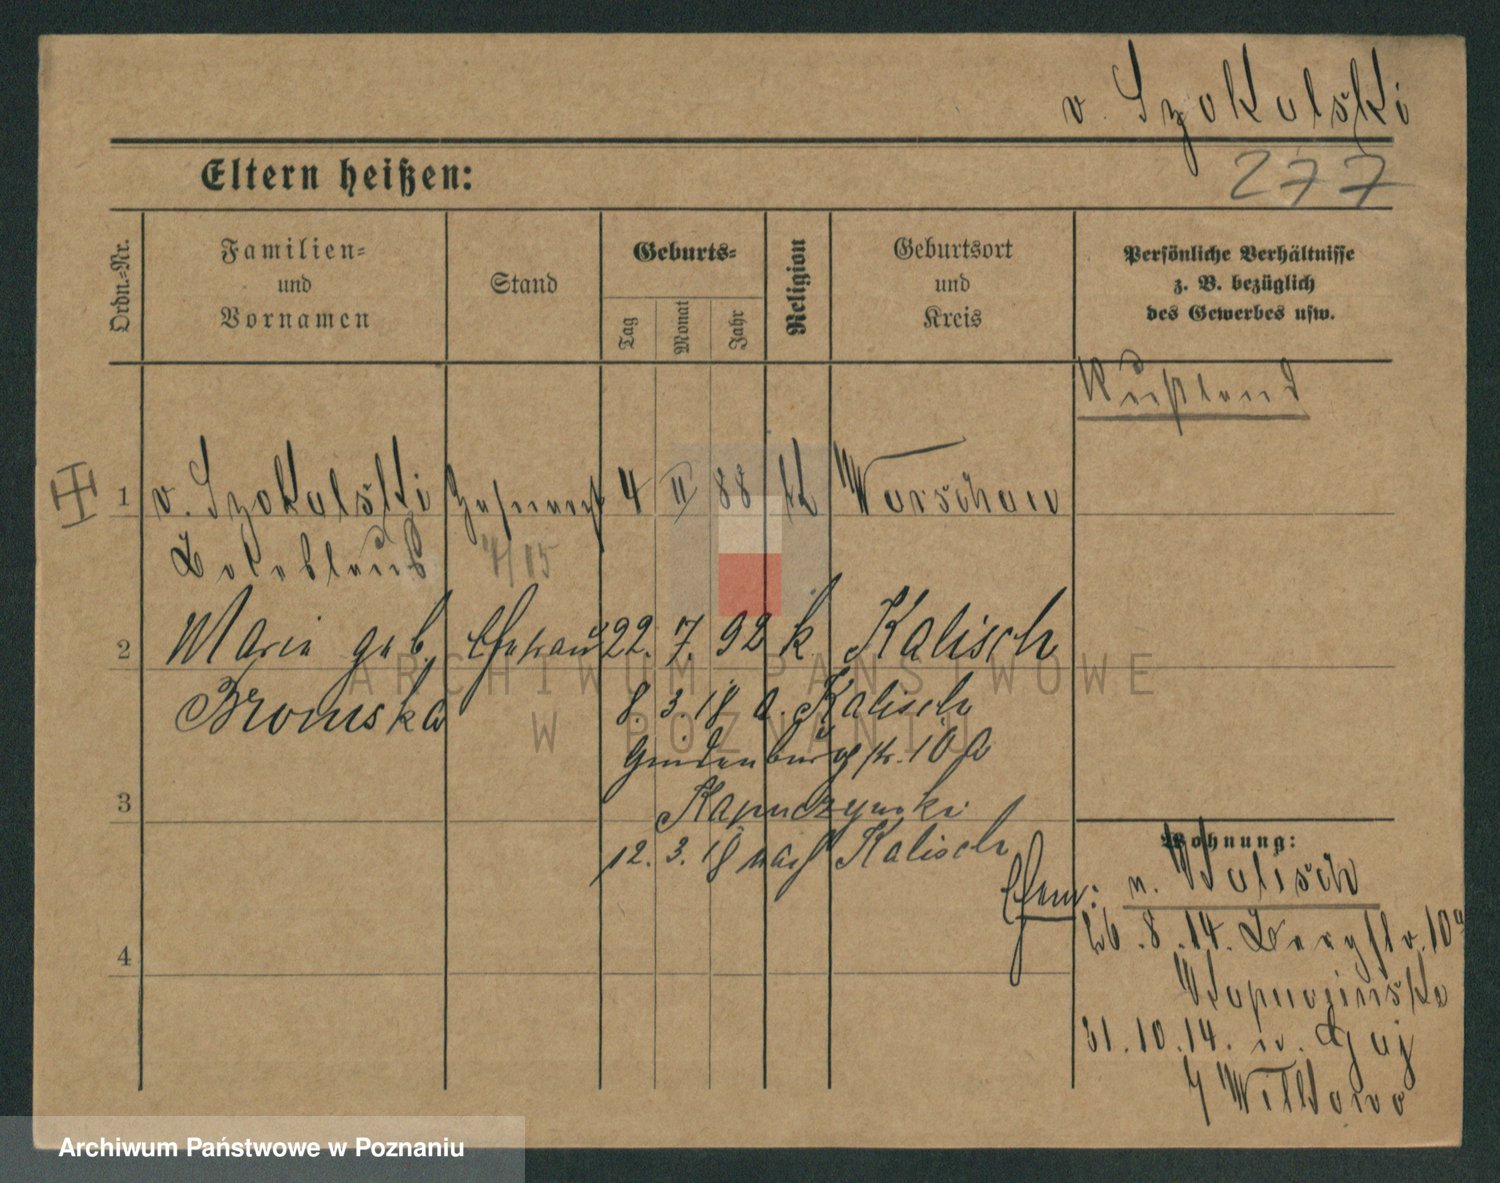 v. Szokalski
277
Eltern heißen:
Ordn.-Nr.
Familien-
und
Vornamen
Stand
Geburts-
Tag
Monat
Jahr
Religion
Geburtsort
und
Kreis
Persönliche Verhältnisse
z. B. bezüglich
des Gewerbes usw.
Rußland
1 v. Szokalski Zahnarzt 4 II 88 kt Warschau
Boleslaus 4/15
2 Maria geb. Ehefrau 22. 7. 92 k. Kalisch
Bromska 8. 3. 18 a. Kalisch
10 a
3
12. 3. 18 nach Kalisch
Wohnung:
v. Kalisch
4
26. 8. 14. Bergstr. 10a
31. 10. 14. n. Gaj
Wilkowo
ARCHIWUM PAŃSTWOWE
W POZNANIU
Archiwum Państwowe w Poznaniu